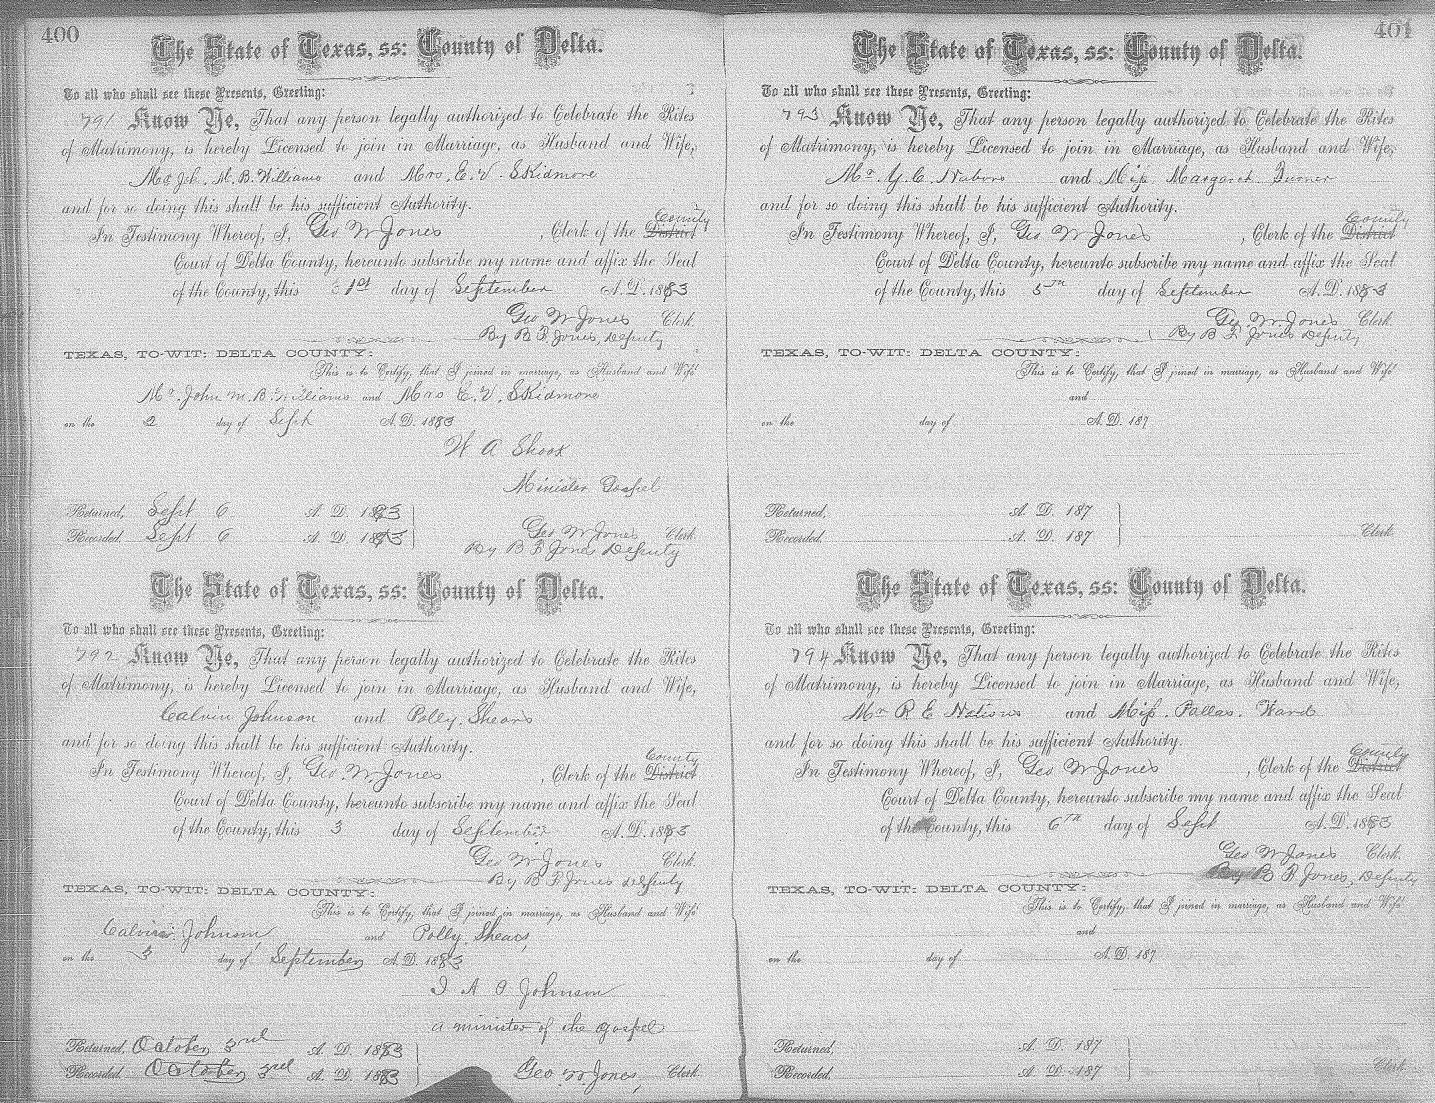 400
The State of Texas, ss: County of Delta.
To all who shall see these Presents, Greeting:
791 Know Ye, That any person legally authorized to Celebrate the Rites
of Matrimony, is hereby Licensed to join in Marriage, as Husband and Wife,
M. B. Williams and Mrs. E. V. Skidmore
and for so doing this shall be his sufficient Authority.
County
In Testimony Whereof, I, Geo W Jones, Clerk of the District
Court of Delta County, hereunto subscribe my name and affix the Seal
of the County, this 1st day of September A. D. 1883
Geo W Jones Clerk.
By B F Jones, Deputy
TEXAS, TO-WIT: DELTA COUNTY:
This is to Certify, that I joined in marriage, as Husband and Wife
Mr. John M. B. Williams and Mrs E. V. Skidmore
on the 2 day of Sept A. D. 1883
W A Shook
Minister Gospel
Returned, Sept 6 A. D. 1883
Recorded, Sept 6 A. D. 1883
Geo W Jones Clerk
By B F Jones Deputy
The State of Texas, ss: County of Delta.
To all who shall see these Presents, Greeting:
792 Know Ye, That any person legally authorized to Celebrate the Rites
of Matrimony, is hereby Licensed to join in Marriage, as Husband and Wife,
Calvin Johnson and Polly Shears
and for so doing this shall be his sufficient Authority.
County
In Testimony Whereof, I, Geo. W Jones, Clerk of the District
Court of Delta County, hereunto subscribe my name and affix the Seal
of the County, this 3 day of September A. D. 1883
Geo W Jones Clerk.
By B F Jones deputy
TEXAS, TO-WIT: DELTA COUNTY:
This is to Certify, that I joined in marriage, as Husband and Wife
Calvin Johnson and Polly Shears,
on the 3 day of September A. D. 1883
I A O Johnson
a minister of the gospel
Returned, October 3rd A. D. 1883
Recorded, October 3rd A. D. 1883
Geo W Jones, Clerk.
401
The State of Texas, ss: County of Delta.
To all who shall see these Presents, Greeting:
793 Know Ye, That any person legally authorized to Celebrate the Rites
of Matrimony, is hereby Licensed to join in Marriage, as Husband and Wife,
Mr. Y. C. Nabors and Miss Margaret Turner
and for so doing this shall be his sufficient Authority.
County
In Testimony Whereof, I, Geo W Jones, Clerk of the District
Court of Delta County, hereunto subscribe my name and affix the Seal
of the County, this 5th day of September A. D. 1883
Geo W Jones Clerk.
By B F Jones Deputy
TEXAS, TO-WIT: DELTA COUNTY:
This is to Certify, that I joined in marriage, as Husband and Wife
and
on the day of A. D. 187
Returned, A. D. 187
Recorded, A. D. 187
Clerk
The State of Texas, ss: County of Delta.
To all who shall see these Presents, Greeting:
794 Know Ye, That any person legally authorized to Celebrate the Rites
of Matrimony, is hereby Licensed to join in Marriage, as Husband and Wife,
Mr R E Nations and Miss. Pallas. Ward
and for so doing this shall be his sufficient Authority.
County
In Testimony Whereof, I, Geo W Jones, Clerk of the District
Court of Delta County, hereunto subscribe my name and affix the Seal
of the County, this 6th day of Sept A. D. 1883
Geo W Jones Clerk.
By B F Jones, Deputy
TEXAS, TO-WIT: DELTA COUNTY:
This is to Certify, that I joined in marriage, as Husband and Wife
and
on the day of A. D. 187
Returned, A. D. 187
Recorded, A. D. 187
Clerk